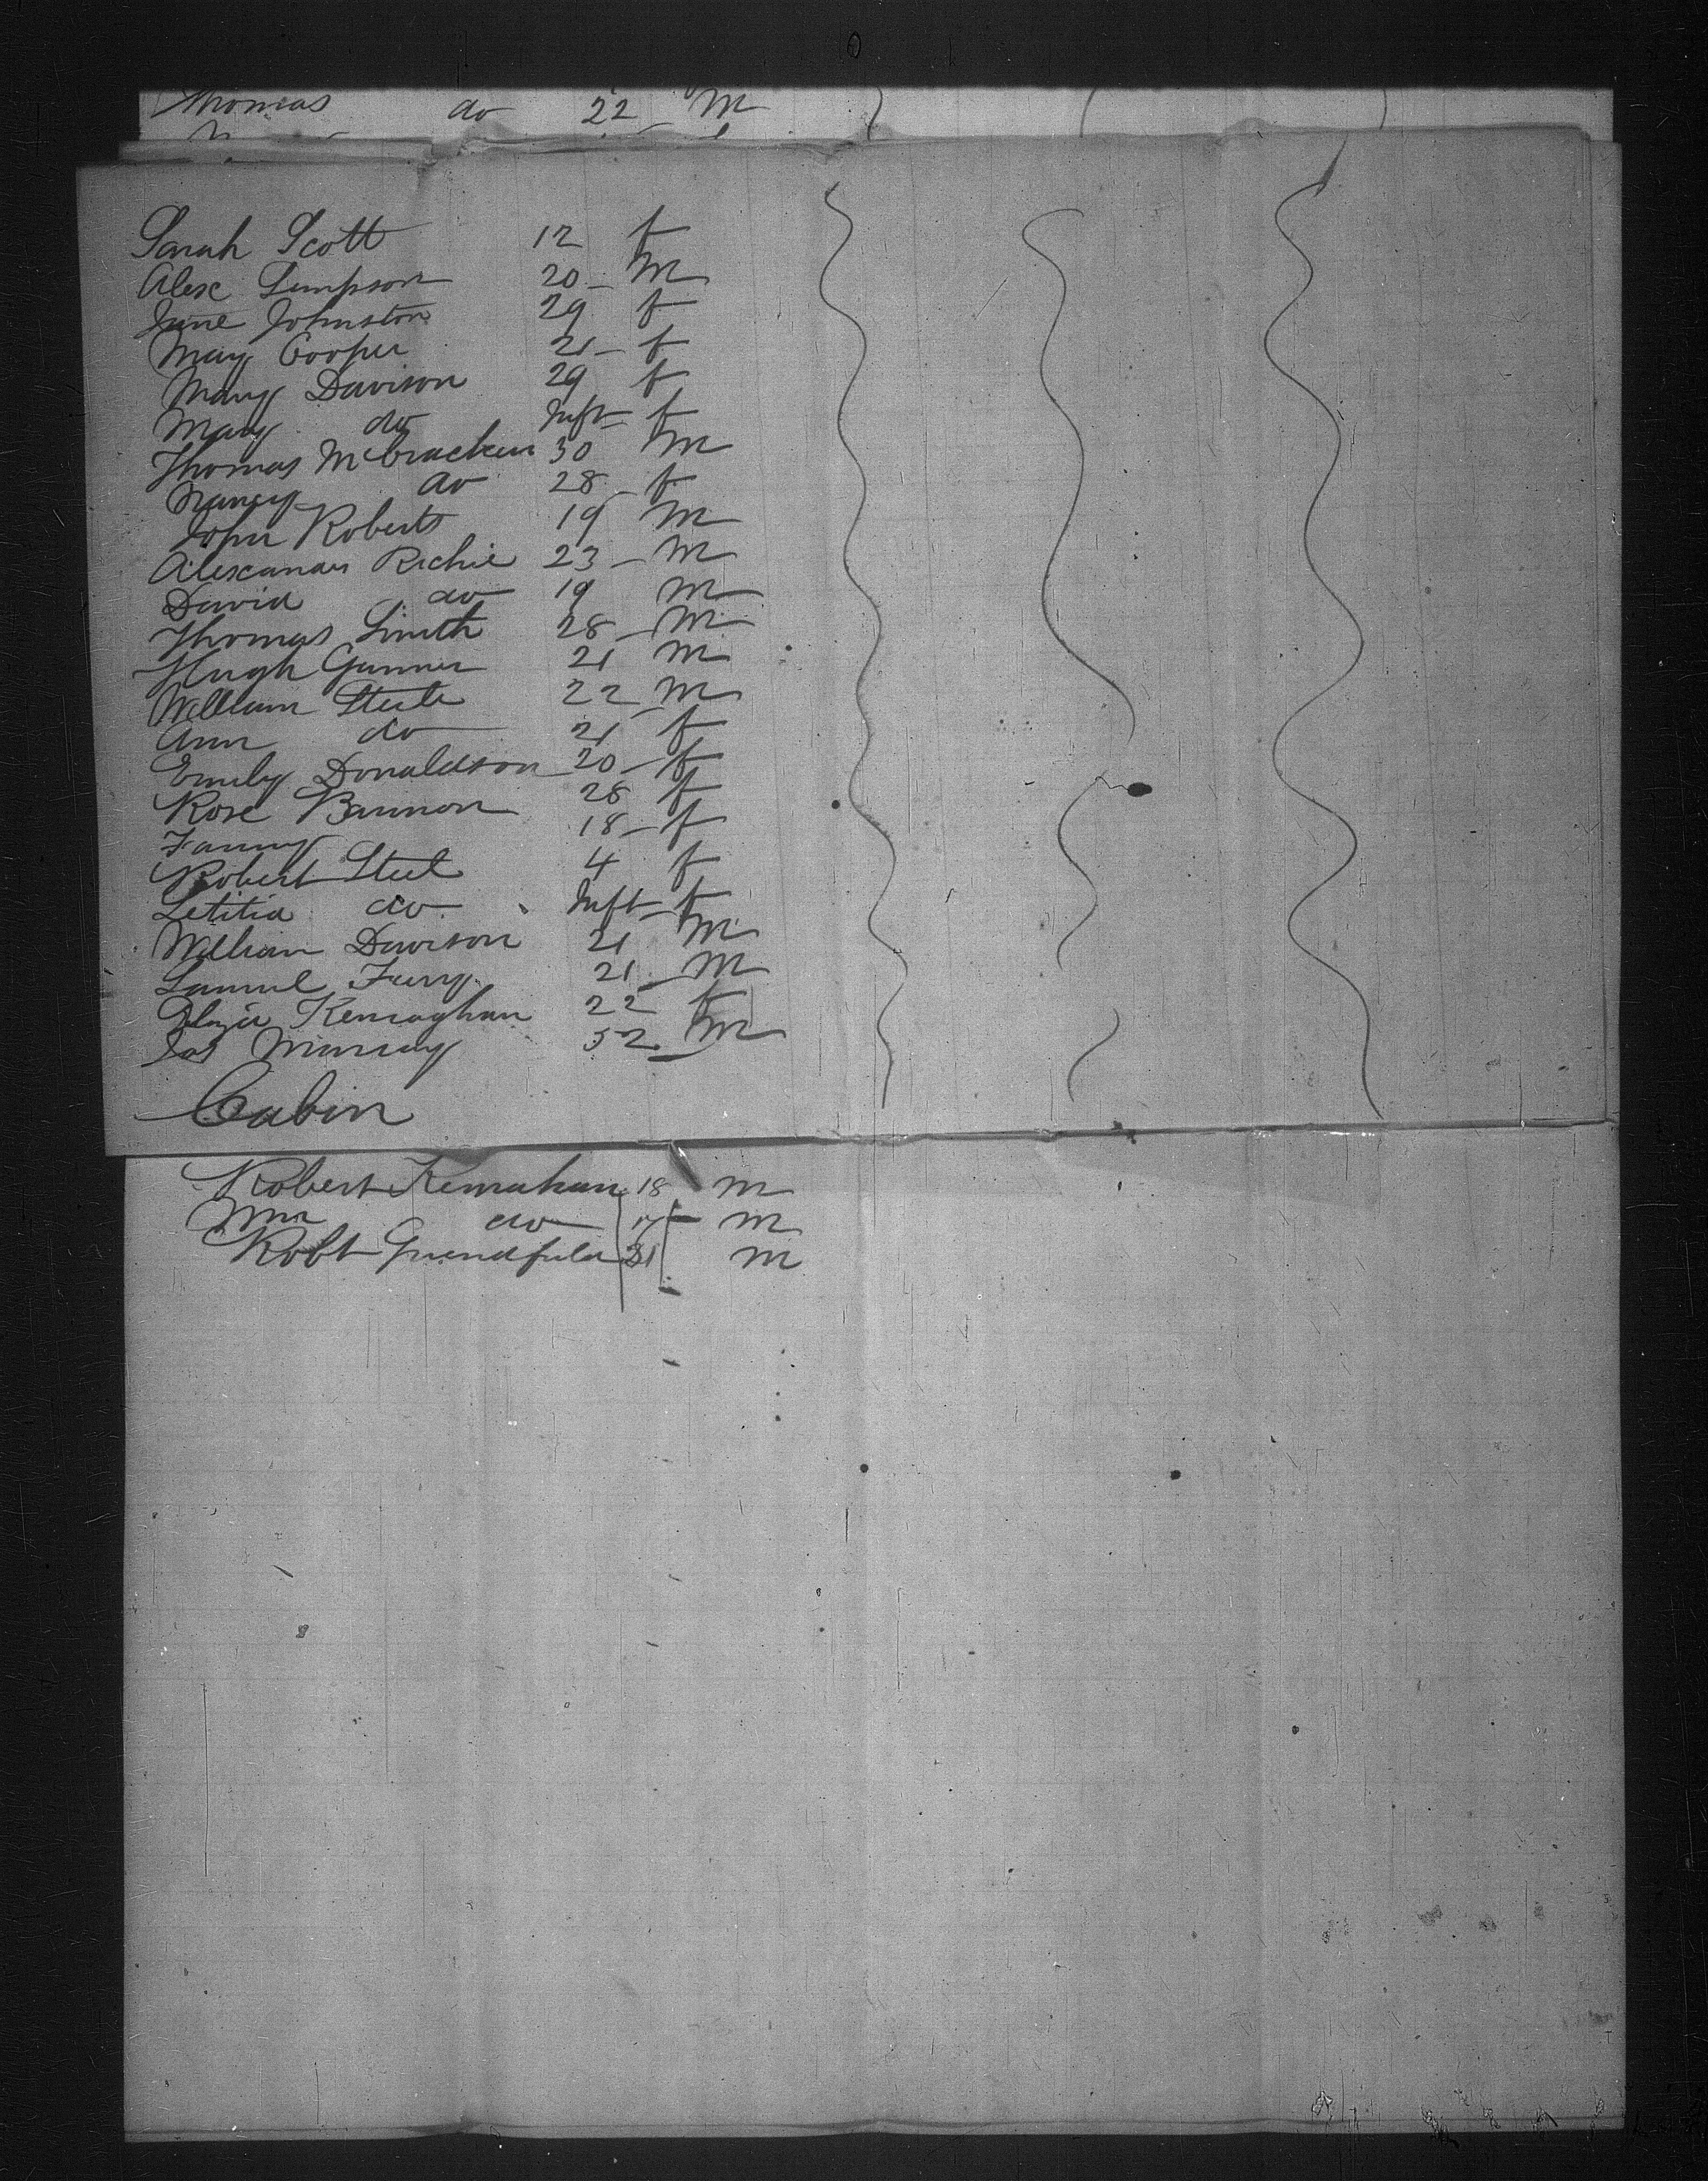 Thomas do 22 M
Sarah Scott 12 f
Alex Simpson 20 - M
Jane Johnston 29 f
May Cooper 21 - f
Mary Davison 29 f
Mary do Inft - f
Thomas McCracken 30 M
Nancy do 28 - f
John Roberts 19 M
Alexander Richie 23 - M
David do 19 M
Thomas Smith 28 - M
Hugh Gunner 21 M
William Steele 22 - M
Ann do 21 f
Emily Donaldson 20 - f
Rose Bannon 28 f
Fanny 18 - f
Robert Steel 4 f
Letitia do Inft - f
William Davison 21 M
Samuel 21 - M
Eliza Kernaghan 22 f
Jas Murray 32 - M
Cabin
Robert Kernahan 18 M
Wm do 17 - M
Robt 21 M